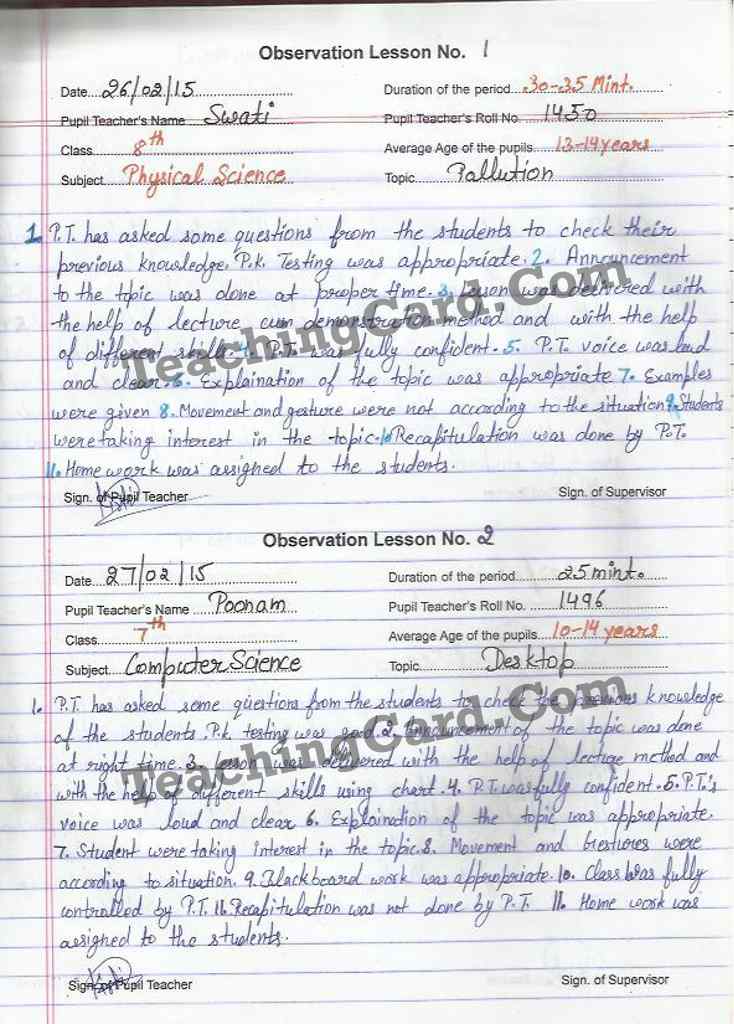 Observation Lesson No. 1
Date 26/02/15 Duration of the period 30-35 Mint.
Pupil Teacher's Name Swati Pupil Teacher's Roll No. 1450
Class 8th Average Age of the pupils 13-14 years
Subject Physical Science Topic Pollution
1. P.T. has asked some questions from the students to check their
previous knowledge. P.K. Testing was appropriate. 2. Announcement
to the topic was done at proper time. 3. Lesson was delivered with
the help of lecture cum demonstration method and with the help
of different skills. 4. P.T. was fully confident. 5. P.T. voice was loud
and clear. 6. Explaination of the topic was appropriate 7. Examples
were given 8. Movement and gesture were not according to the situation 9. Students
were taking interest in the topic. 10 Recapitulation was done by P.T.
11. Home work was assigned to the students.
Sign. of Pupil Teacher Sign. of Supervisor
Observation Lesson No. 2
Date 27/02/15 Duration of the period 25 mint.
Pupil Teacher's Name Poonam Pupil Teacher's Roll No. 1496
Class 7th Average Age of the pupils 10-14 years
Subject Computer Science Topic Desktop
1. P.T. has asked some questions from the students to check the previous knowledge
of the students. P.K. testing was good. 2. Announcement of the topic was done
at right time. 3. Lesson was delivered with the help of lecture method and
with the help of different skills using chart. 4. P.T. was fully confident. 5. P.T.'s
voice was loud and clear 6. Explaination of the topic was appropriate.
7. Student were taking interest in the topic. 8. Movement and Gestures were
according to situation. 9. Blackboard work was appropriate. 10. Class was fully
controlled by P.T. 11. Recapitulation was not done by P.T. 11. Home work was
assigned to the students.
Sign. of Pupil Teacher Sign. of Supervisor
TeachingCard.Com
TeachingCard.Com